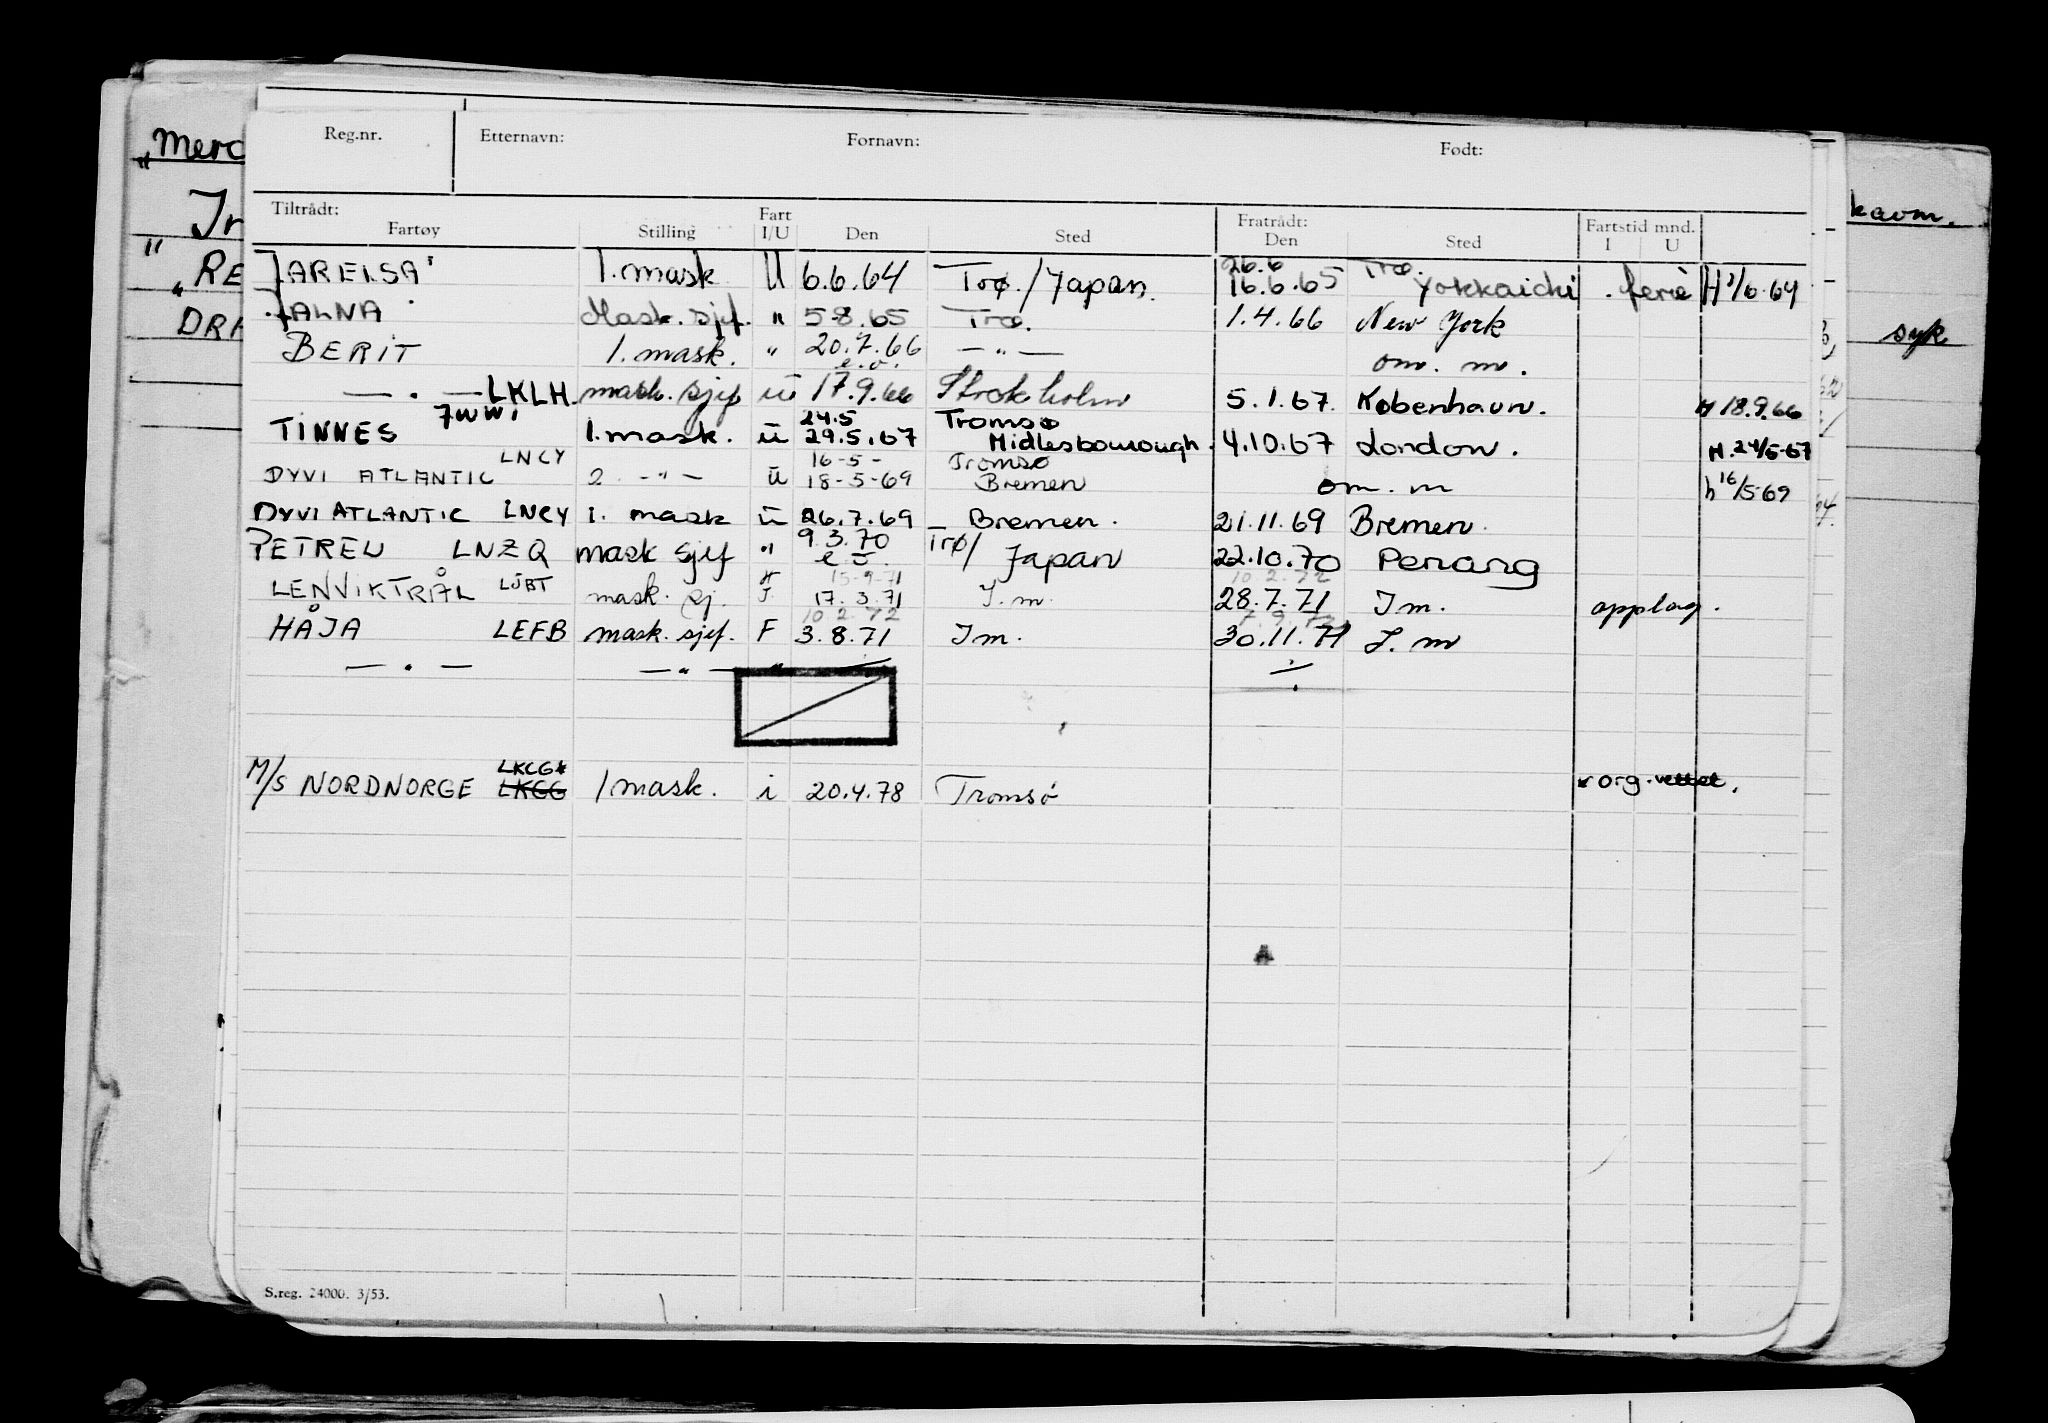 Reg.nr. Etternavn: Fornavn: Født:
Tiltrådt: Fartøy Stilling Fart I/U Den Sted Fratrådt: Den Sted Fartstid mnd. I U
"Merc
Jr
" RE
" DRA
kavm.
syk
JARELSA 1. mask U 6.6.64 Trø./Japan. 26.6 16.6.65 Trø. Yokkaichi . ferie
JALNA Mask. sjef. " 5-8.65 Trø. 1.4.66 New York
BERIT 1. mask. " 20.7.66 e.o. — " — om. m.
— . — LKLH. mask. sjef u 17.9.66 Stockholm 5.1.67. København. H 18.9.66
TINNES 7WWI 1. mask. u 24.5 29.5.67 Tromsø Midlesborough. 4.10.67 London. H. 24/5-67
DYVI ATLANTIC LNCY 2. -"- u 16-5- 18-5-69 Tromsø Bremen om. m h 16/5-69
DYVI ATLANTIC LNCY 1. mask u 26.7.69 Bremen. 21.11.69 Bremen.
PETREL LNZQ mask sjef " 9.3.70 Trø/ Japan 22.10.70 Penang
LENVIKTRÅL mask. sj. 15-9-71 17.3.71 I.m. 10.2.72 28.7.71 I m. opplag.
HÅJA LEFB mask. sjef. F 10 2.72 3.8.71 I m. 30.11.71 I. m
— . — — " — "
M/S NORDNORGE LKCG LKGG 1 mask. i 20.4.78 Tromsø org.
S.reg. 24000. 3/53.